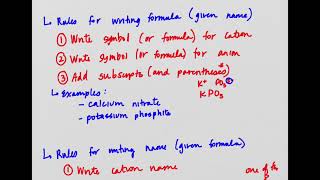 ↳ Rules for writing formula (given name)
① Write symbol (or formula) for cation
② Write symbol (or formula) for anion
③ Add subscripts (and parentheses)
K⁺ PO₃
↳ Examples: KPO₃
- calcium nitrate
- potassium phosphite
↳ Rules for writing name (given formula)
① Write cation name one of